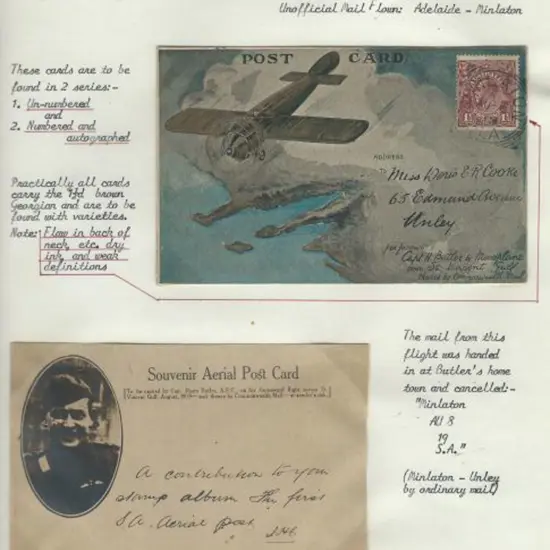 Unofficial Mail Flown: Adelaide - Minlaton
These cards are to be
found in 2 series:-
1. Un-numbered
and
2. Numbered and
autographed
Practically all cards
carry the 1½d brown
Georgian and are to be
found with varieties.
Note: Flaw in back of
neck, etc. dry
ink, and weak
definitions
POST CARD
ADDRESS
To Miss Doris E R Cooke
65 Edmund Avenue
Unley
per favour
Capt H Butler & his monoplane
over St. Vincent Gulf
thence by Commonwealth Mail
Souvenir Aerial Post Card
[To be carried by Capt. Harry Butler, A.F.C., on his Aeroplane flight across St.
Vincent Gulf, August, 1919—and thence by Commonwealth Mail
A contribution to your
stamp album The first
S.A. Aerial post.
The mail from this
flight was handed
in at Butler's home
town and cancelled:-
"Minlaton
AU 8
19
S.A."
(Minlaton - Unley
by ordinary mail)